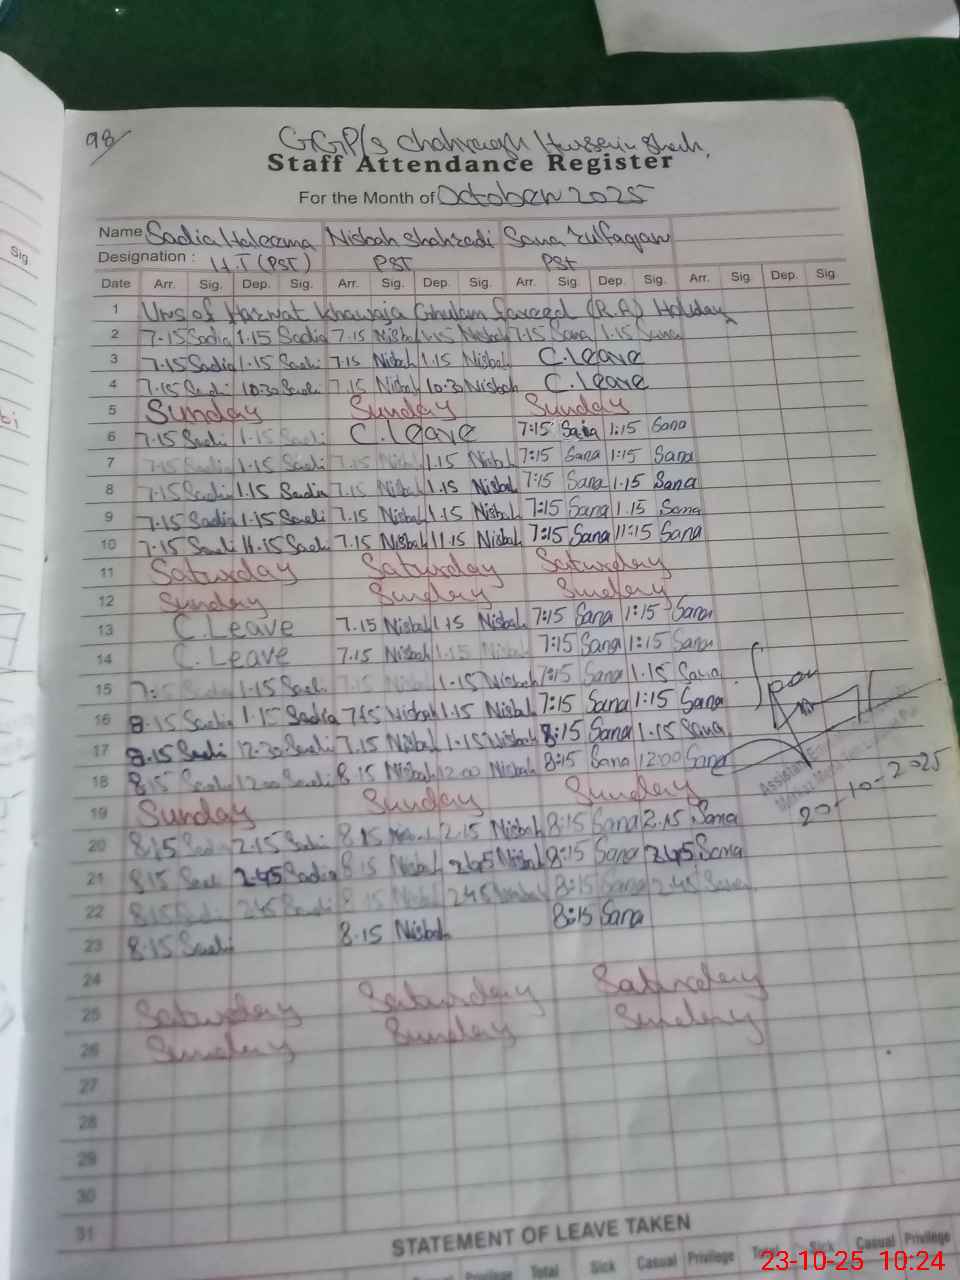 98/
GGP/s Chahragh Hussein Shah,
Staff Attendance Register
For the Month of October 2025
Name Sadia Haleema Nisbah Shahzadi Sana Zulfaqar
Designation : H.T (PST) PST PST
Date Arr. Sig. Dep. Sig. Arr. Sig. Dep. Sig. Arr. Sig. Dep. Sig. Arr. Sig. Dep. Sig.
1 Urs of Hazrat Khawaja Ghulam Fareed (R.A) Holiday
2 7.15 Sadia 1.15 Sadia 7.15 Nisbah 1.15 Nisbah 7.15 Sana 1.15 Sana
3 7.15 Sadia 1.15 Sadi 7.15 Nisbah 1.15 Nisbah C.Leave
4 7.15 Sadi 10.30 Sadi 7.15 Nisbah 10.30 Nisbah C.Leave
5 Sunday Sunday Sunday
6 7.15 Sadi 1.15 Sadi C.Leave 7:15 Sana 1:15 Sana
7 7.15 Sadia 1.15 Sadi 7.15 Nisbah 1.15 Nisbah 7:15 Sana 1:15 Sana
8 7.15 Sadia 1.15 Sadia 7.15 Nisbah 1.15 Nisbah 7:15 Sana 1.15 Sana
9 7.15 Sadia 1.15 Sadi 7.15 Nisbah 1.15 Nisbah 7:15 Sana 1.15 Sana
10 7.15 Sadi 11.15 Sadi 7.15 Nisbah 11.15 Nisbah 7:15 Sana 11:15 Sana
11 Saturday Saturday Saturday
12 Sunday Sunday Sunday
13 C.Leave 7.15 Nisbah 1.15 Nisbah 7:15 Sana 1:15 Sana
14 C.Leave 7.15 Nisbah 1.15 Nisbah 7:15 Sana 1:15 Sana
15 7:15 Sadia 1.15 Sadi 7.15 Nisbah 1.15 Nisbah 7:15 Sana 1.15 Sana
16 8.15 Sadia 1.15 Sadia 7.15 Nisbah 1.15 Nisbah 7:15 Sana 1:15 Sana
17 8.15 Sadi 12.30 Sadi 7.15 Nisbah 1.15 Nisbah 8:15 Sana 1.15 Sana
18 8.15 Sadi 12.00 Sadi 8.15 Nisbah 12.00 Nisbah 8:15 Sana 12:00 Sana
19 Sunday Sunday Sunday
20-10-2025
20 8.15 Sadi 2.15 Sadi 8.15 Nisbah 2.15 Nisbah 8:15 Sana 2.15 Sana
21 8.15 Sadi 2.45 Sadia 8.15 Nisbah 2.45 Nisbah 8:15 Sana 2.45 Sana
22 8.15 Sadi 2.45 Sadi 8.15 Nisbah 2.45 Nisbah 8:15 Sana 2.45 Sana
23 8.15 Sadi 8.15 Nisbah 8:15 Sana
24
25 Saturday Saturday Saturday
26 Sunday Sunday Sunday
27
28
29
30
31
STATEMENT OF LEAVE TAKEN
Privilege Total Sick Casual Privilege Total Sick Casual Privilege
23-10-25 10:24
Sig.